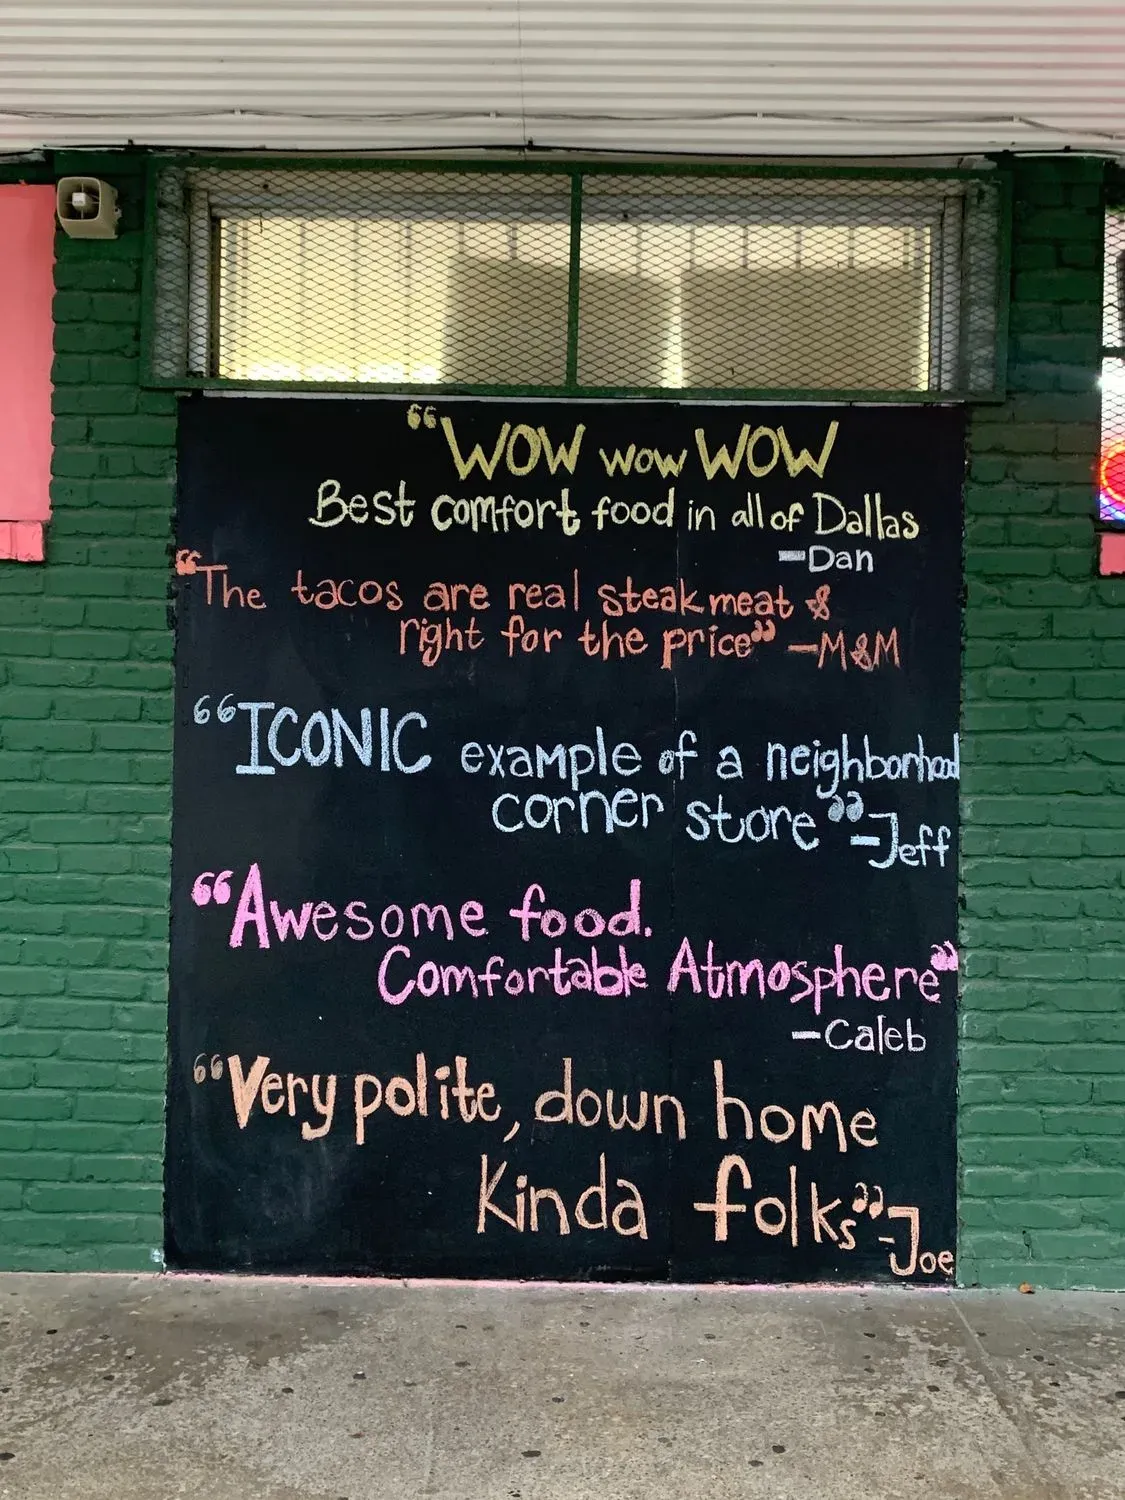 “WOW wow WOW
Best comfort food in all of Dallas
-Dan
“The tacos are real steak meat &
right for the price” -M&M
“ICONIC example of a neighborhood
corner store” -Jeff
“Awesome food.
Comfortable Atmosphere”
-Caleb
“Very polite, down home
Kinda folks” -Joe